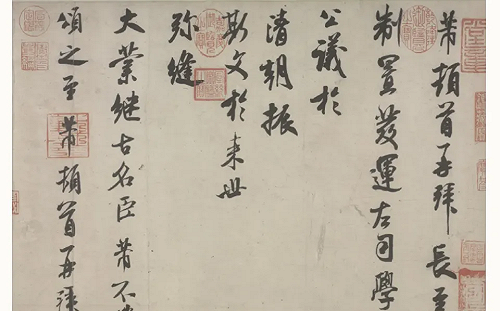 芾頓首再拜長至
制置發運左司學
公議於
清朝振
斯文於来世
弥縫
大業继古名臣芾不
頌之至芾頓首再拜